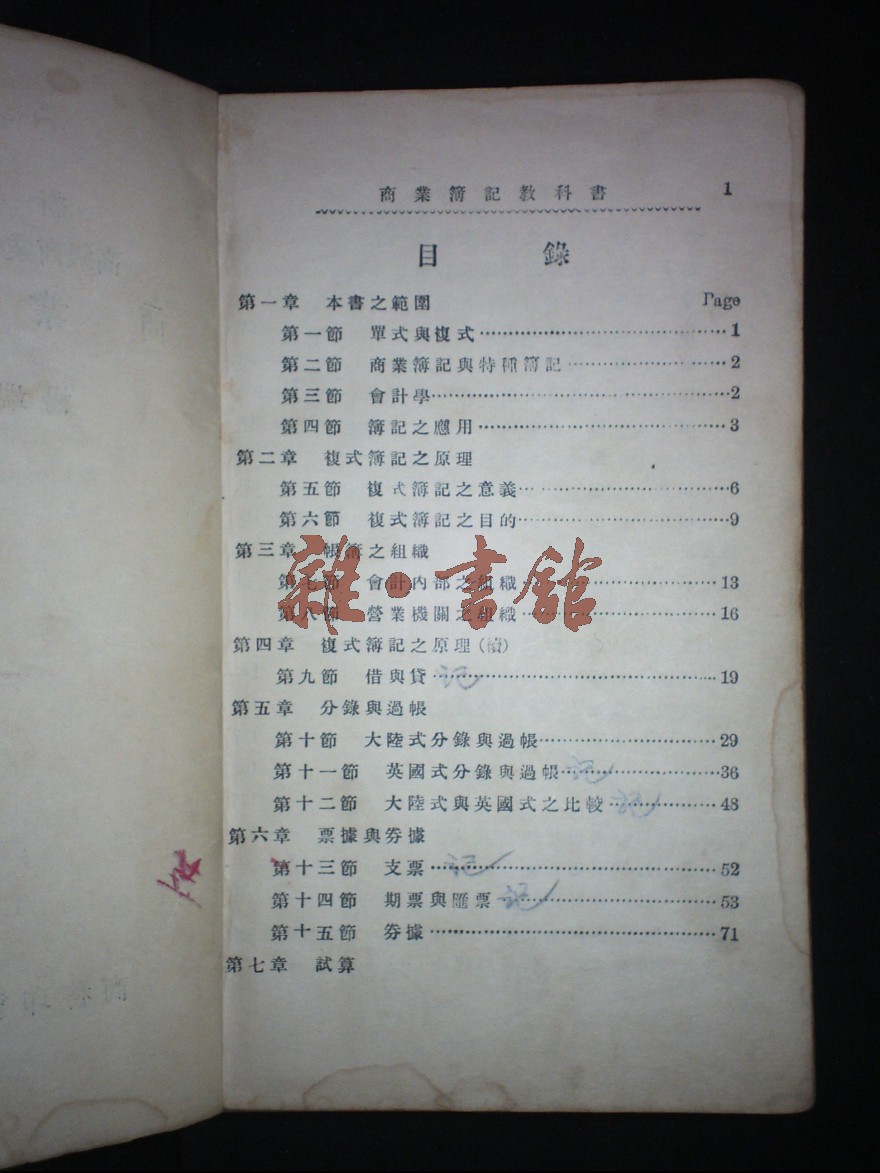 商業簿記教科書 1
目 錄
第一章 本書之範圍 Page
第一節 單式與複式 1
第二節 商業簿記與特種簿記 2
第三節 會計學 2
第四節 簿記之應用 3
第二章 複式簿記之原理
第五節 複式簿記之意義 6
第六節 複式簿記之目的 9
第三章 帳簿之組織
第七節 會計內部之組織 13
第八節 營業機關之組織 16
雜·書館
第四章 複式簿記之原理(續)
第九節 借與貸 記 19
第五章 分錄與過帳
第十節 大陸式分錄與過帳 29
第十一節 英國式分錄與過帳 記 36
第十二節 大陸式與英國式之比較 記 48
第六章 票據與券據
第十三節 支票 記 52
第十四節 期票與匯票 記 53
第十五節 券據 71
第七章 試算